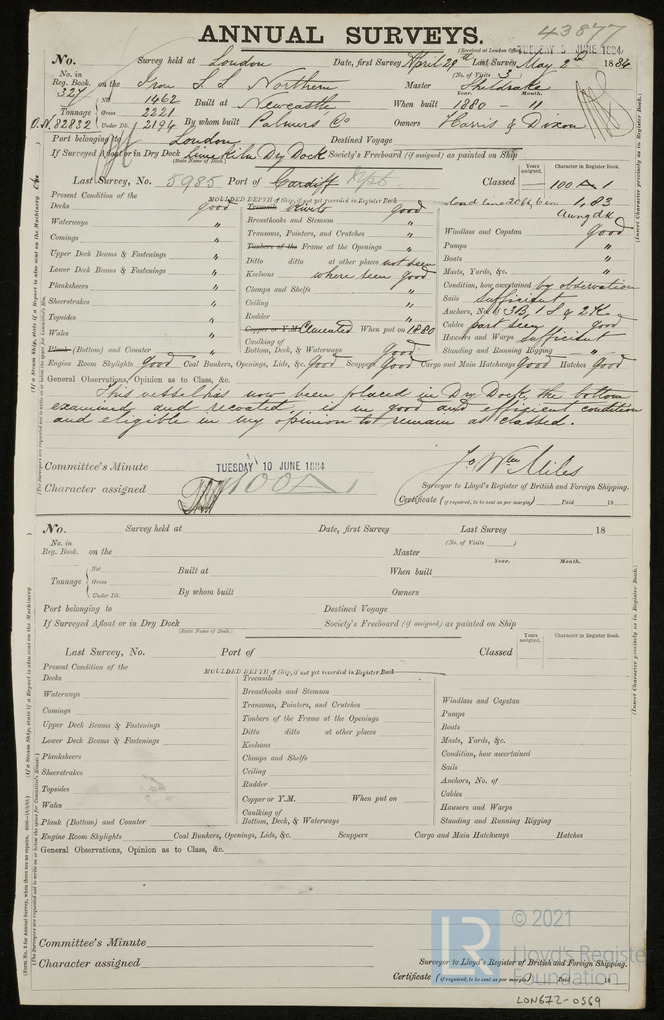 43877
ANNUAL SURVEYS.
(Received at London Office TUESDAY 3 JUNE 1884
No. Survey held at London Date, first Survey April 29th Last Survey May 2d 1884
No. in Reg. Book. 327 on the Iron S.S. Northern (No. of Visits 3) Master Sheldrake
Year. Month.
Tonnage Net 1462 Built at Newcastle When built 1880 - "
Gross 2221
O.N. 82832 Under Dk. 2194 By whom built Palmers Co Owners Harris & Dixon
Port belonging to London Destined Voyage
If Surveyed Afloat or in Dry Dock Limekiln Dry Dock Society's Freeboard (if assigned) as painted on Ship
(State Name of Dock.)
Years assigned. Character in Register Book.
Last Survey, No. 5985 Port of Cardiff Classed 100 A 1
1,83
MOULDED DEPTH of Ship, if not yet recorded in Register Book
Present Condition of the
Decks good Treenails rivets good
Waterways " Breasthooks and Stemson "
Comings " Transoms, Pointers, and Crutches " Windlass and Capstan good
Upper Deck Beams & Fastenings " Timbers of the Frame at the Openings " Pumps "
Lower Deck Beams & Fastenings " Ditto ditto at other places not seen Boats "
Planksheers " Keelsons where seen good Masts, Yards, &c. "
Sheerstrakes " Clamps and Shelfs Condition, how ascertained by observation
Topsides " Ceiling " Sails sufficient
Wales " Rudder " Anchors, No. of 3B, 1S & 2K
Plank (Bottom) and Counter " Copper or Y.M. Cemented When put on 1880 Cables part seen good
Caulking of Bottom, Deck, & Waterways good Hawsers and Warps sufficient
Standing and Running Rigging "
Engine Room Skylights good Coal Bunkers, Openings, Lids, &c. good Scuppers good Cargo and Main Hatchways good Hatches good
General Observations, Opinion as to Class, &c.
This vessel has now been placed in Dry Dock, the bottom
examined and recoated, is in good and efficient condition
and eligible in my opinion to remain as classed.
Committee's Minute TUESDAY 10 JUNE 1884
Jo Wm Miles
Character assigned 100A1
Surveyor to Lloyd's Register of British and Foreign Shipping.
Certificate (if required, to be sent as per margin) Paid 18
No. Survey held at Date, first Survey Last Survey 18
No. in Reg. Book. on the (No. of Visits ) Master
Year. Month.
Tonnage Net Built at When built
Gross
Under Dk. By whom built Owners
Port belonging to Destined Voyage
If Surveyed Afloat or in Dry Dock Society's Freeboard (if assigned) as painted on Ship
(State Name of Dock.)
Years assigned. Character in Register Book.
Last Survey, No. Port of Classed
Present Condition of the MOULDED DEPTH of Ship, if not yet recorded in Register Book
Decks Treenails
Waterways Breasthooks and Stemson
Comings Transoms, Pointers, and Crutches Windlass and Capstan
Upper Deck Beams & Fastenings Timbers of the Frame at the Openings Pumps
Lower Deck Beams & Fastenings Ditto ditto at other places Boats
Planksheers Keelsons Masts, Yards, &c.
Sheerstrakes Clamps and Shelfs Condition, how ascertained
Topsides Ceiling Sails
Wales Rudder Anchors, No. of
Plank (Bottom) and Counter Copper or Y.M. When put on Cables
Caulking of Bottom, Deck, & Waterways Hawsers and Warps
Standing and Running Rigging
Engine Room Skylights Coal Bunkers, Openings, Lids, &c. Scuppers Cargo and Main Hatchways Hatches
General Observations, Opinion as to Class, &c.
Committee's Minute
Character assigned
Surveyor to Lloyd's Register of British and Foreign Shipping.
Certificate (if required, to be sent as per margin) Paid 18
LR © 2021 Lloyd's Register Foundation
LON672-0569
(Insert Character precisely as in Register Book.)
(Insert Character precisely as in Register Book.)